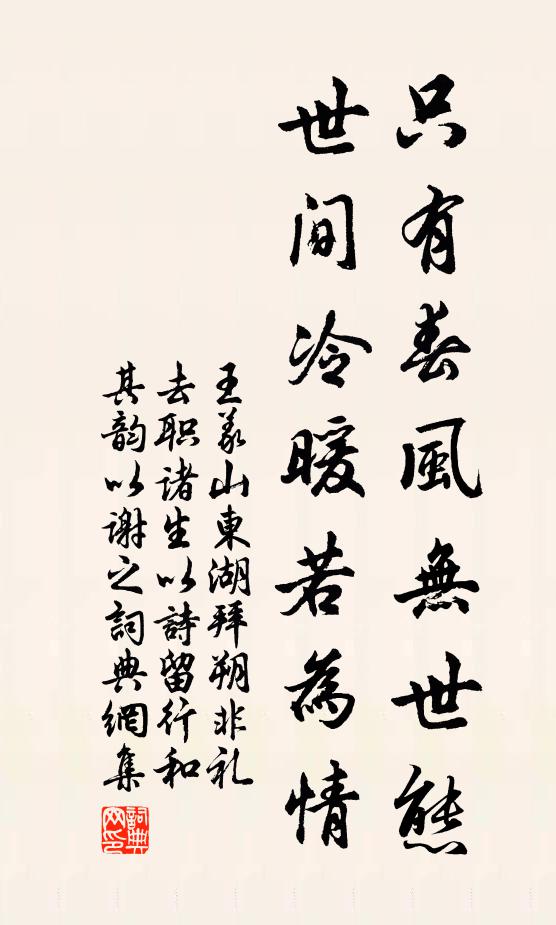 只有春風無世態
世间冷暖若為情
王义山東湖拜朔非礼
去职诸生以詩留行和
其韵以谢之詞典網集
詞典網印